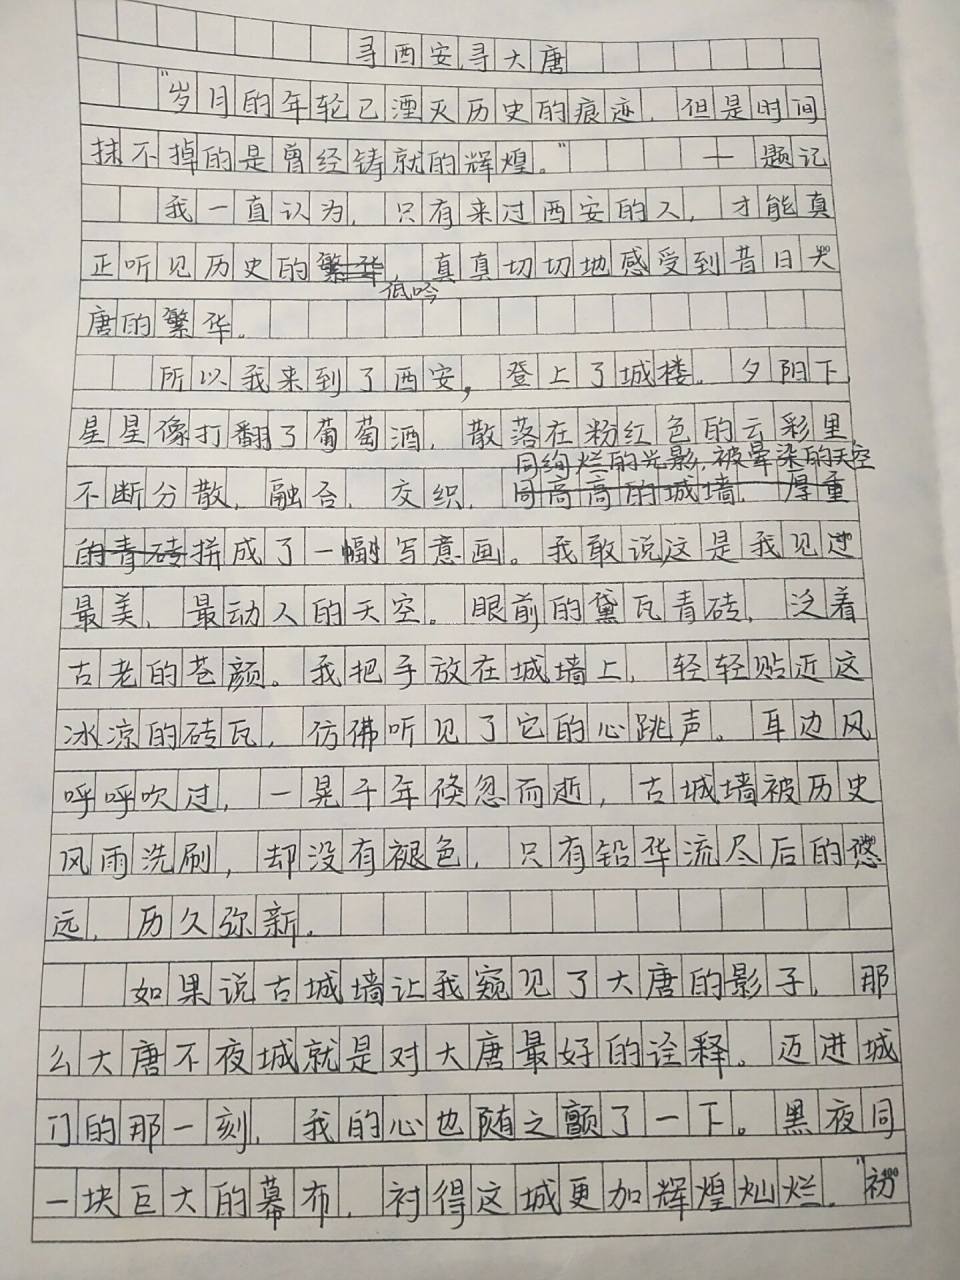 寻西安,寻大唐
"岁月的年轮已湮灭历史的痕迹，但是时间
抹不掉的是曾经铸就的辉煌。" ——题记
我一直认为，只有来过西安的人，才能真
正听见历史的低吟，真真切切地感受到昔日大
唐的繁华。
所以我来到了西安，登上了城楼。夕阳下，
星星像打翻了葡萄酒，散落在粉红色的云彩里
同绚烂的光影，被晕染的天空
不断分散，融合，交织，同高高的城墙，厚重
的青砖拼成了一幅写意画。我敢说这是我见过
最美、最动人的天空。眼前的黛瓦青砖，泛着
古老的苍颜。我把手放在城墙上，轻轻贴近这
冰凉的砖瓦，仿佛听见了它的心跳声。耳边风
呼呼吹过，一晃千年倏忽而逝，古城墙被历史
风雨洗刷，却没有褪色，只有铅华流尽后的悠
远，历久弥新。
如果说古城墙让我窥见了大唐的影子，那
么大唐不夜城就是对大唐最好的诠释。迈进城
门的那一刻，我的心也随之颤了一下。黑夜同
一块巨大的幕布，衬得这城更加辉煌灿烂。"初